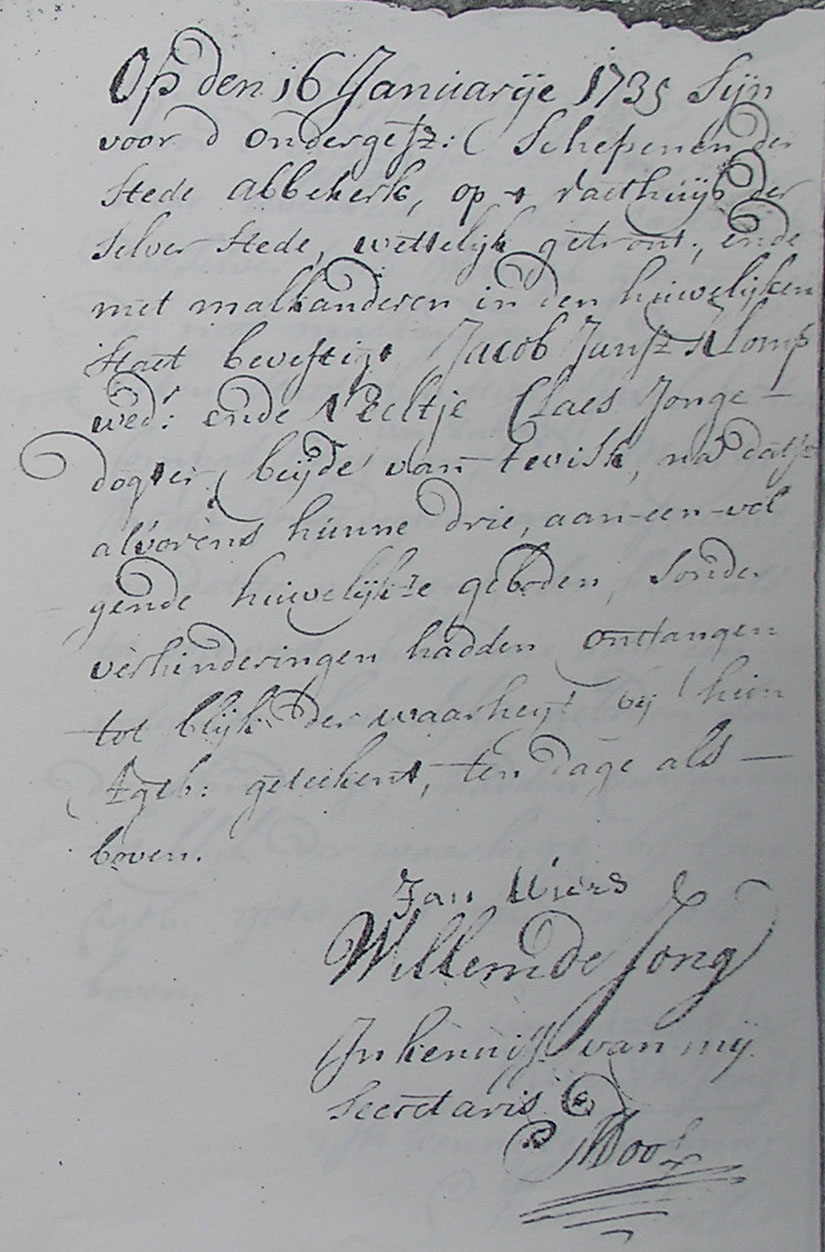 Op den 16 Januarije 1735 Sijn
voor d ondergesz: Schepenen der
Stede Abbekerk, op t raethuijs der
Selver Stede, wettelijk getrout, ende
met malkanderen in den huwelijken
Staet bevestigt Jacob Jansz Klomp
wedr: ende Neeltje Claes Jonge –
dogter, beijde van Twisk, na datse
alvorens hunne drie, aan-een-vol
gende huwelijkse geboden, sonder
verhinderingen hadden ontfangen
tot blijk der waarheyt bij hun
geteikent, ten dage als –
boven.
Jan
Willem de Jong
In kennisse van mij
Secretaris